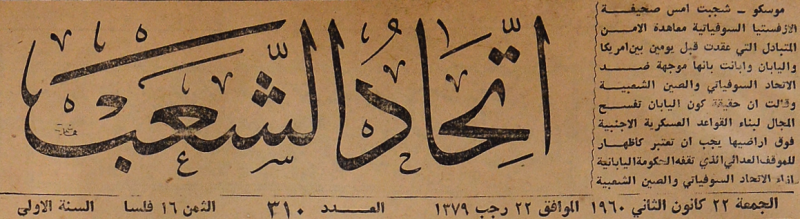 اتحاد الشعب
موسكو ـ شجبت امس صحيفة
الازفستيا السوفياتية معاهدة الامن
المتبادل التي عقدت قبل يومين بين امريكا
واليابان وابانت بانها موجهة ضد
الاتحاد السوفياتي والصين الشعبية
وقالت ان حقيقة كون اليابان تفسح
المجال لبناء القواعد العسكرية الاجنبية
فوق اراضيها يجب ان تعتبر كاظهار
للموقف العدائي الذي تقفه الحكومة اليابانية
ازاء الاتحاد السوفياتي والصين الشعبية
الجمعة ٢٢ كانون الثاني ١٩٦٠ الموافق ٢٢ رجب ١٣٧٩ العدد ٣١٠ الثمن ١٦ فلسا السنة الاولى